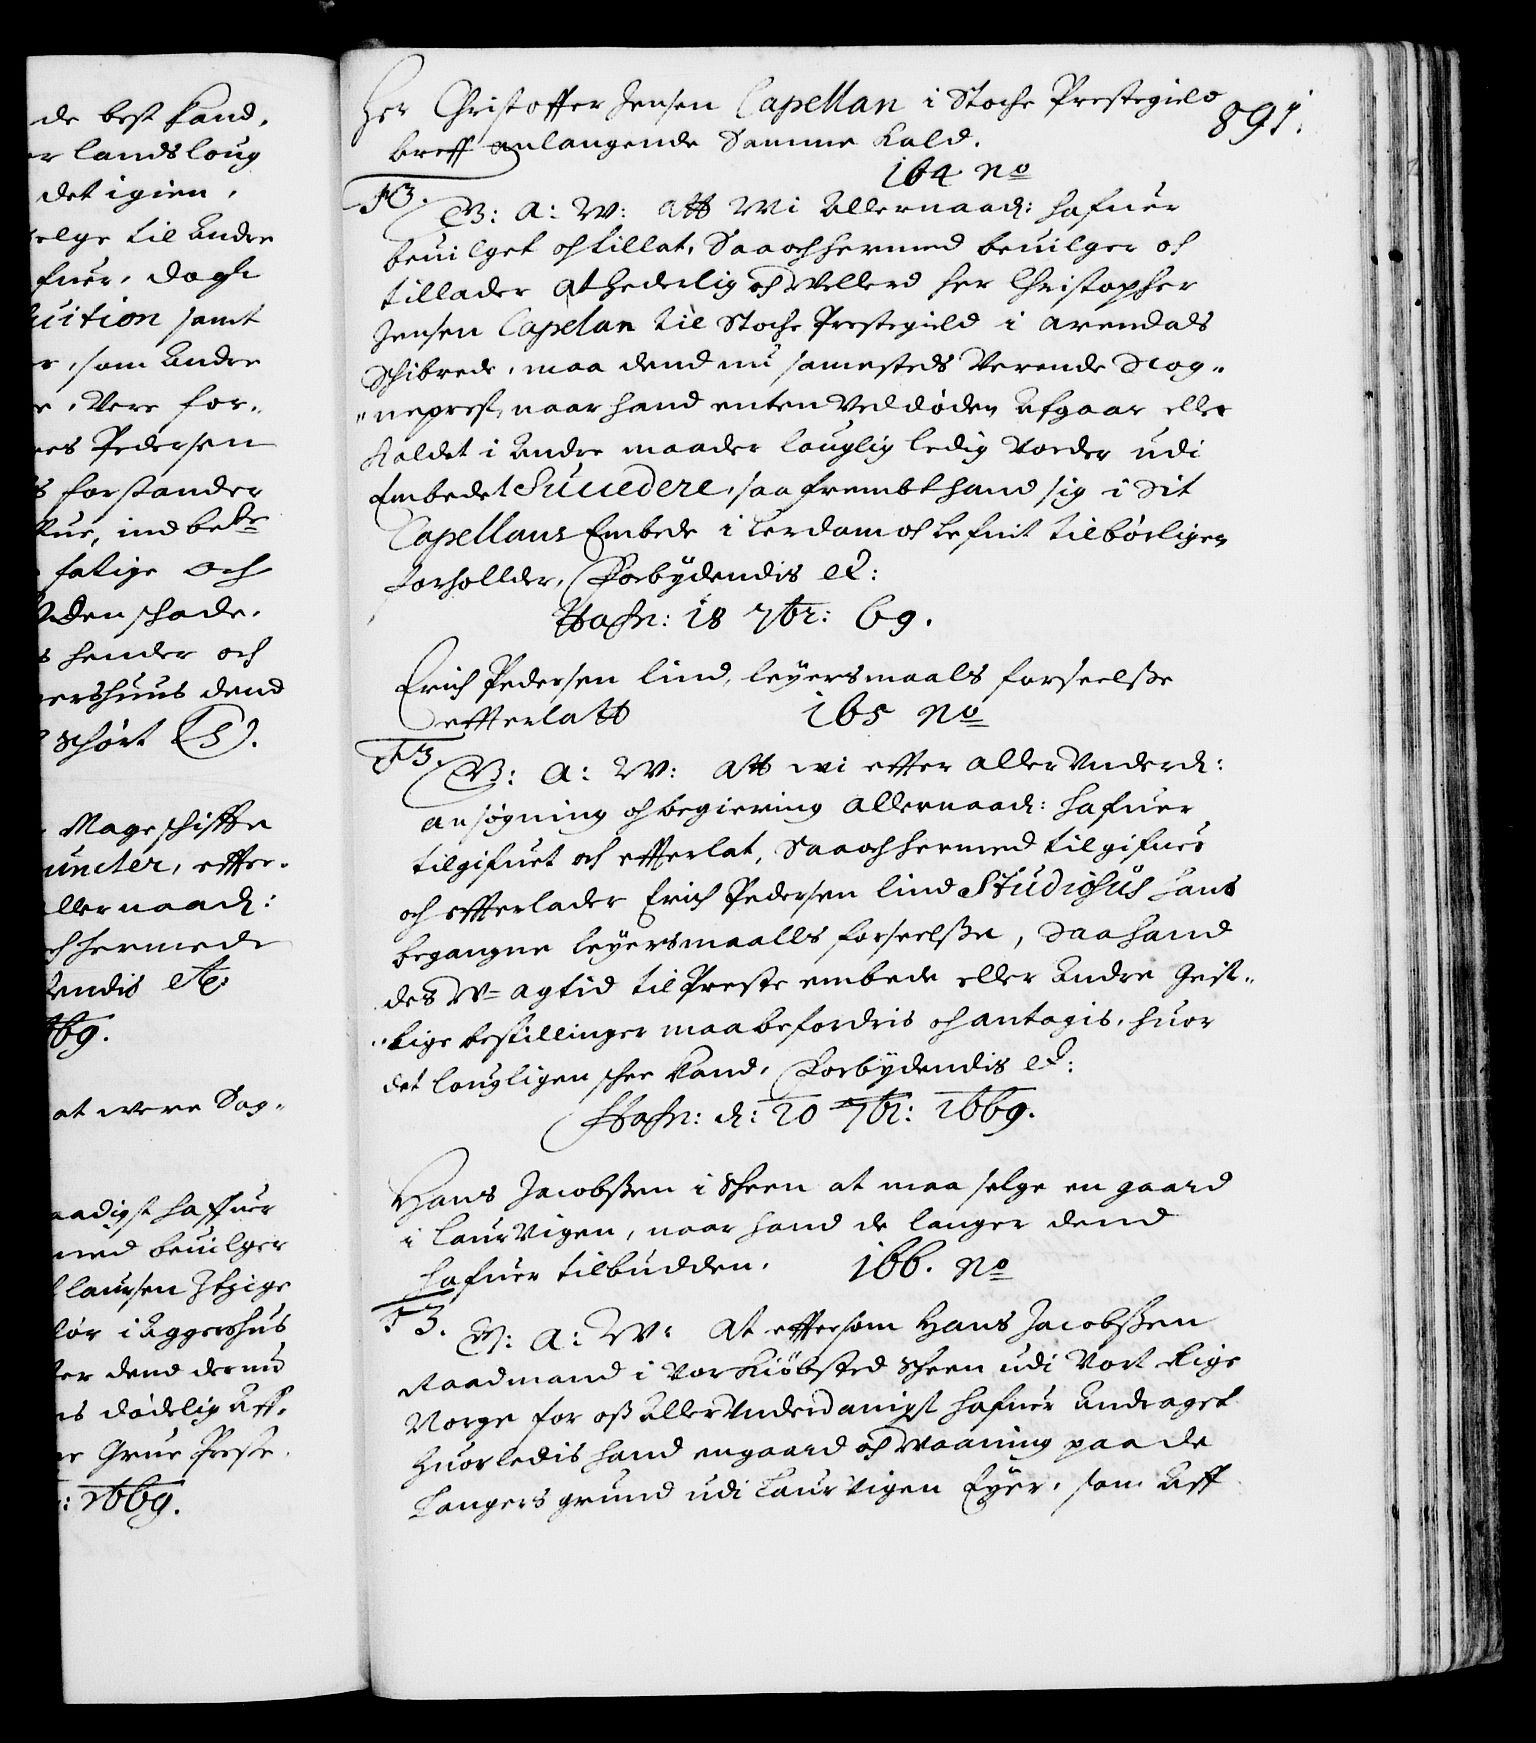 de best kand.
er landsloug
det igien,
selge til Andre
fuer, dogh
uition samt
r, som Andre
e, Vere for-
nes Pedersen
s forstander
Kue, ind bete
fatige och
Vden schade.
s hender och
ershuus dend
schört
Mageschiffte
uncter, effter-
ller naad:
ch hermede
endis etc:
69.
at were Sog-
aadigst haffuer
med beuilger
laursen Itzige
lör i Aggershus
ter dend der nu
ns dödelig Aff-
ne Grue Preste
: 1669.
Her Christoffer Jensen Capellan i Stoche Prestegield
891.
breff anlangende Samme Kald.
164 no
F3.
G: A: W: Att Wi Allernaad: hafuer
beuilget och tillat, Saa och hermed beuilger och
tillader At hederlig och Vellerd her Christopher
Jensen Capelan til Stoche Prestegield i Arendals
Schibrede, maa dend nu samesteds Verende Sog-
neprest, naar hand enten Ved döden Afgaar eller
Kaldet i Andre maader lauglig ledig Vorder udi
Embedet Succedere, saa frembt hand sig i Sit
Capellans Embede i Lerdom och Lefnit tilbörligen
forhollder, Forbÿdendis etc:
Hafn: 18 7br: 69.
Erich Pedersen lind, leÿersmaals forseelsse
effterlatt
165 no
F3.
G: A: W: Att wi effter allerVnderd:
ansøgning och begiering Allernaad: hafuer
tilgifuet och effterlat, Saa och hermed tilgifuer
och effterlader Erich Pedersen lind Studiosus hans
begangne leÿersmaalls forseelsse, Saa hand
des V-agtid til Preste embede eller Andre Geist-
lige bestillinger maa befordris och antagis, huor
det lougligen schee kand, Forbÿdendis etc:
Hafn: d: 20 7br: 1669.
Hans Jacobssen i Scheen at maa selge en gaard
i LaurVigen, naar hand de langer dend
hafuer tilbudden.
166. no
F3.
G: A: W: At effersom Hans Jacobssen
Raadmand i Vor Kiöbsted Scheen udi Vort Rige
Norge for oss AllerVnderdanigst hafuer Andraget
huorledis hand en gaard och Vaaning paa de
Langers grund udi LaurVigen Eÿer, som Aff